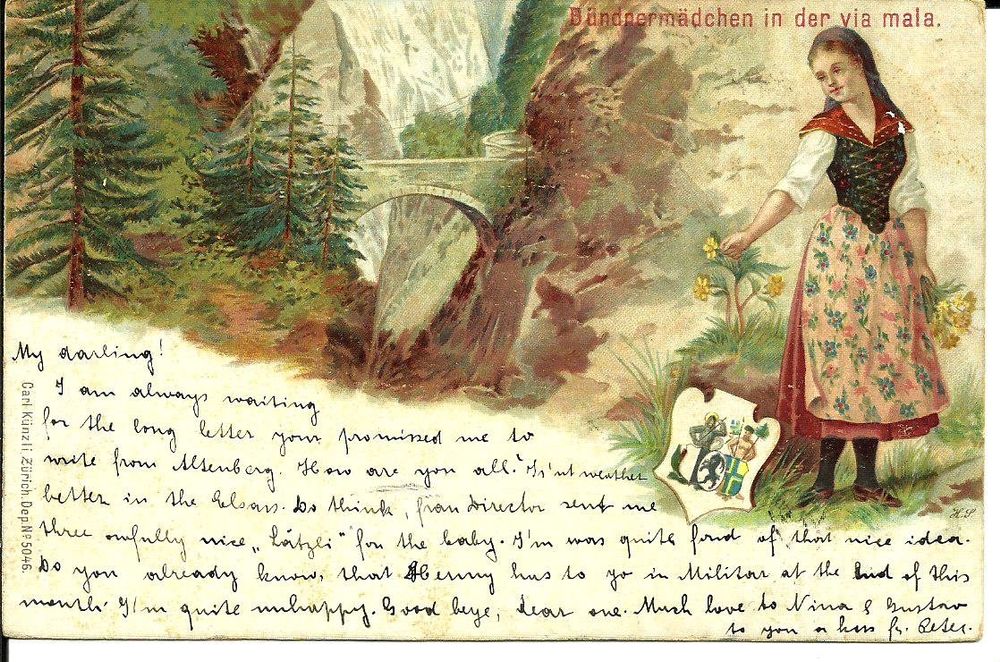 Bündnermädchen in der via mala.
My darling!
I am always waiting
for the long letter your promissed me to
write from Altenberg. How are you all? Is'nt weather
better in the Elsass. Do think, frau Director sent me
three awfully nice „Lätzli" for the baby. I'm was quite fond of that nice idea.
Do you already know, that Henny has to go in Militär at the End of this
month. I'm quite unhappy. Good beye, dear one. Much love to Nina & Gustav
to you a kiss fr.
Carl Künzli, Zürich Dep. No 5046.